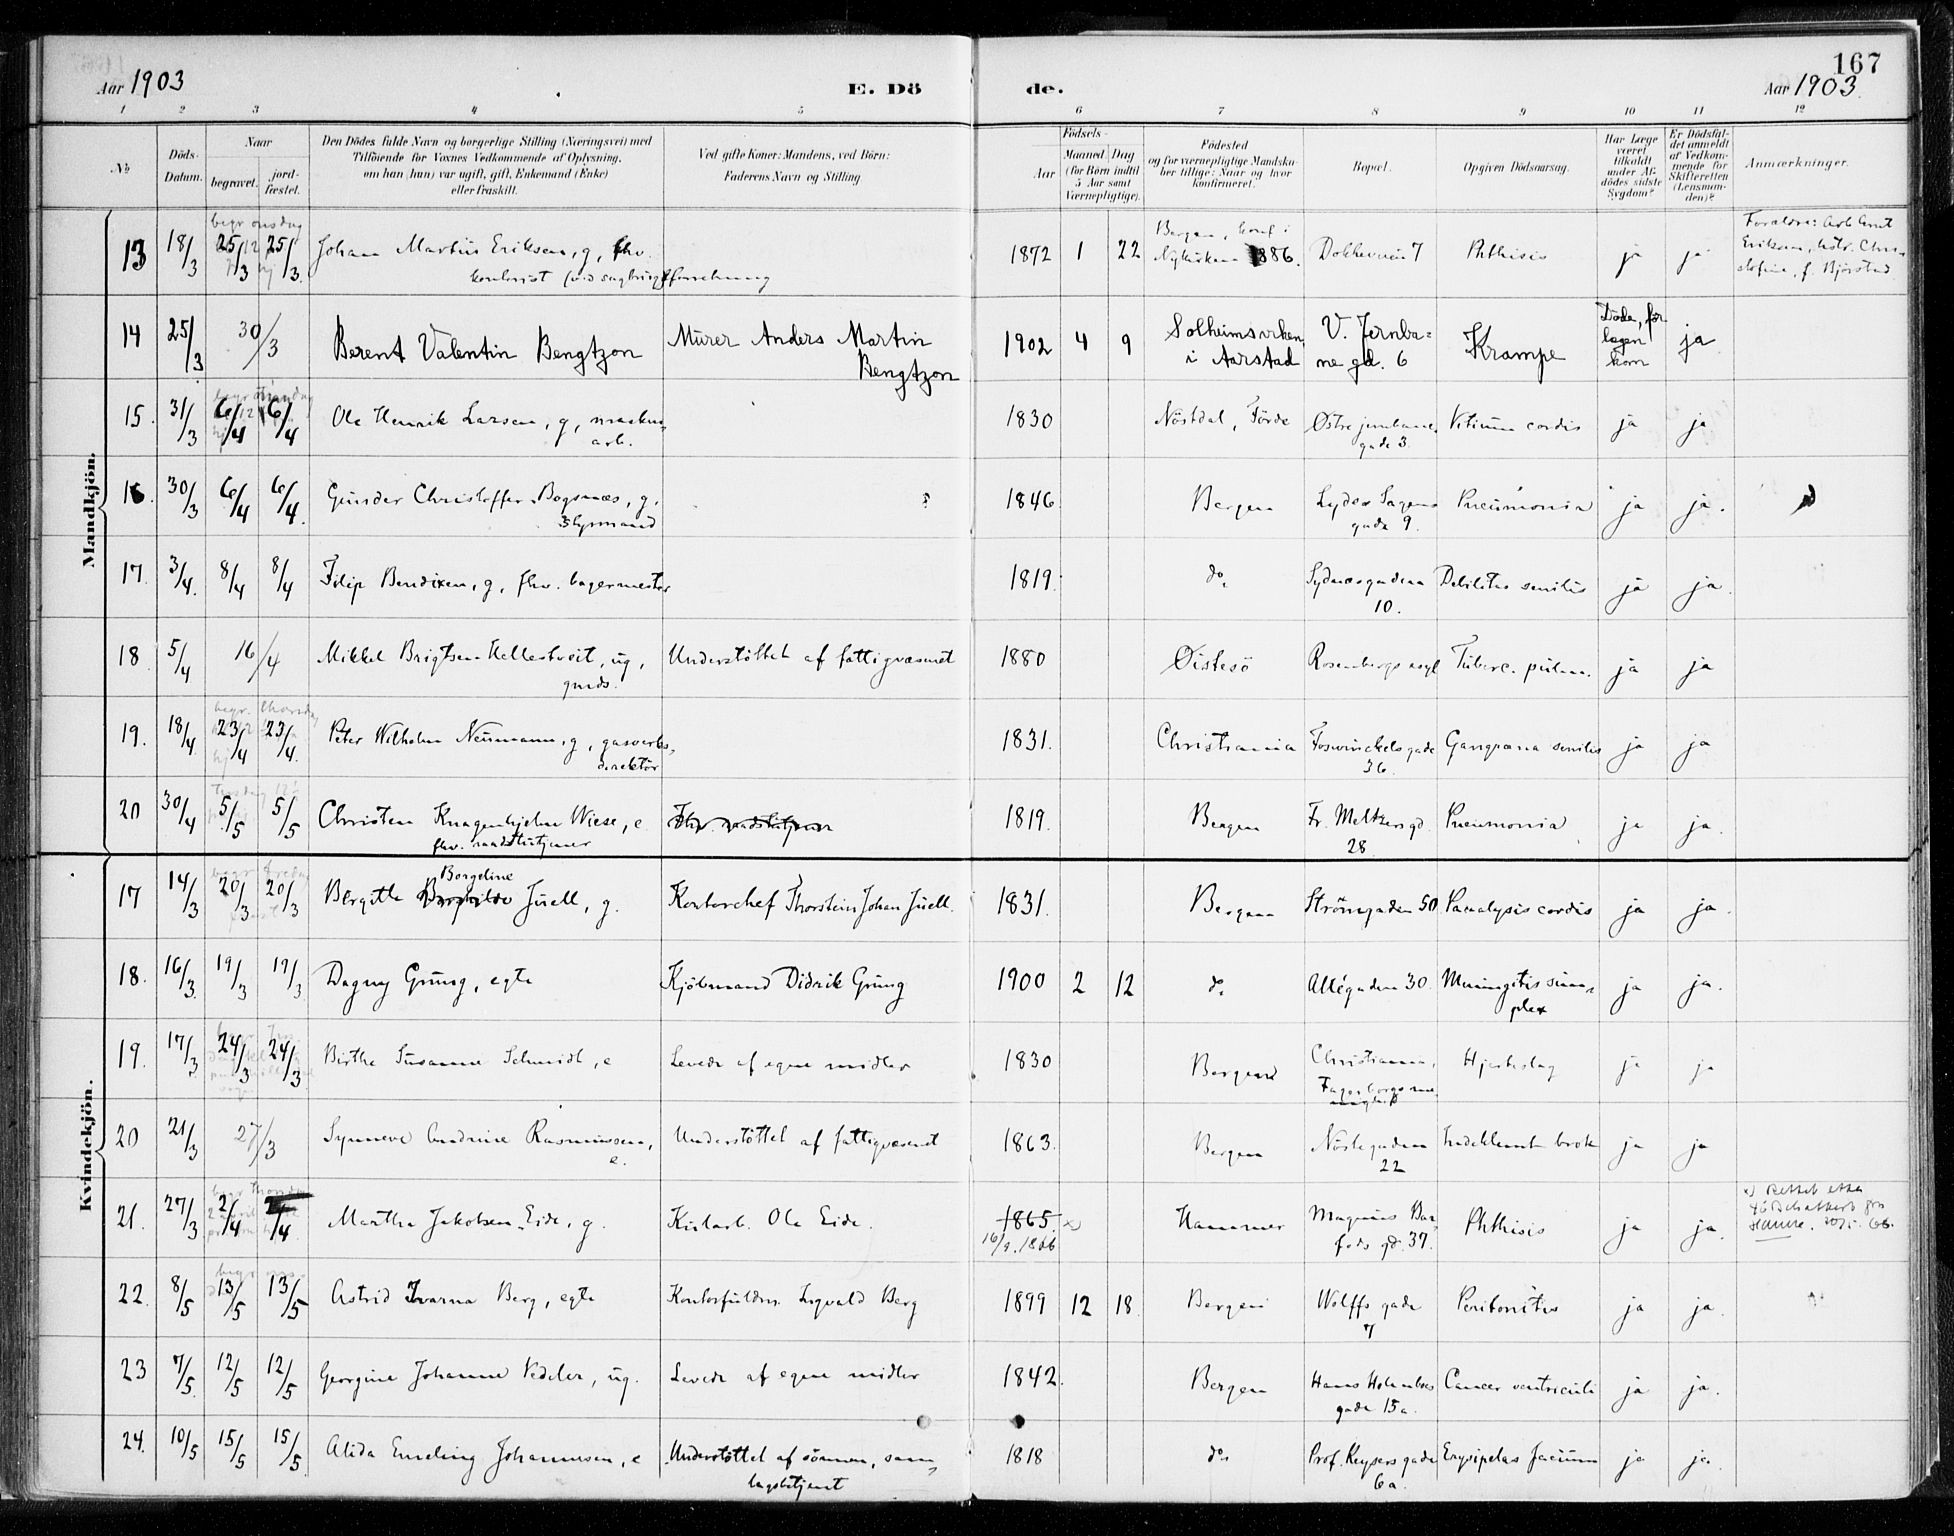 167
Aar 1903
E. Dö
de.
Aar 1903.
1 2 3 4 5 6 7 8 9 10 11 12
No
Döds-
Datum.
Naar
begravet.
jord-
fæstet.
Den Dödes fulde Navn og borgerlige Stilling (Næringsvei) med
Tilföiende for Voxnes Vedkommende af Oplysning,
om han (hun) var ugift, gift, Enkemand (Enke)
eller fraskilt.
Ved gifte Koner: Mandens, ved Börn:
Faderens Navn og Stilling
Födsels-
Aar
Maaned
Dag
(for Börn indtil
5 Aar samt
Værnepligtige).
Födested
og for værnepligtige Mandska-
ber tillige: Naar og hvor
konfirmeret.
Bopæl.
Opgiven Dödsaarsag.
Har Læge
været
tilkaldt
under Af-
dödes sidste
Sygdom?
Er Dödsfal-
det anmeldt
af Vedkom-
mende for
Skifteretten
(Lensman-
den)?
Anmærkninger.
Mandkjön.
13 18/3 begr. onsdag 25/3 25/3 Johan Martin Eriksen, g, fhv.
kontorist (ved sagbrugsforretning
1872 1 22 Bergen, konf i
Nykirken 1886. Dokkeveien 7 Phthisis ja ja Forældre: Arb. Arnt
Eriksen, hstr. Chri-
stofine, f. Björstad
14 25/3 30/3 Berent Valentin Bengtzon Murer Anders Martin
Bengtzon
1902 4 9 Solheimsviken
i Aarstad V. Jernba-
ne gd. 6 Krampe Döde, för
lægen
kom ja
15. 31/3 6/4 6/4 Ole Henrik Larsen, g, maskin-
arb.
1830 Nöstdal, Förde Østre jernbane-
gade 3. Vitium cordis ja ja
16. 30/3 6/4 6/4 Gunder Christoffer Bogsnæs, g,
Styrmand
? 1846 Bergen Lyder Sagens
gade 9. Pneumonia ja ja.
17. 3/4 8/4 8/4 Filip Bendixen, g, fhv. bagermester
1819. do. Sydnæsgaden
10. Debilitas senilis ja ja
18 5/4 16/4 Mikkel Brigtsen Hellestveit, ug,
gards. Understöttet af fattigvæsenet
1880 Øistesö Rosenbergs asyl Tuberc. pulm. ja ja
19. 18/4 23/4 23/4 Peter Wilhelm Neumann, g, gasverks-
direktör
1831. Christiania Foswinckels gade
36 Gangræna senilis ja ja
20 30/4 5/5 5/5 Christen Knagenhjelm Wiese, e
fhv. raadstutjener
1819. Bergen Fr. Meltzersgd.
28 Pneumonia ja ja.
Kvindekjön.
17 14/3 20/3 20/3 Bergitte Borgeline Juell, g. Kontorchef Thorstein Johan Juell.
1831. Bergen Strömgaden 50 Paralysis cordis ja ja.
18. 16/3 19/3 19/3 Dagny Grung, egte Kjöbmand Didrik Grung
1900 2 12 do. Allégaden 30. Meningitis sim-
plex ja ja.
19. 17/3 24/3 24/3 Birthe Susanne Schmidt, e Levede af egne midler
1830 Bergen Christiania,
Fagerborgs Hjerteslag ja ja
20 21/3 27/3 Synneve Andrine Rasmussen,
e. Understöttet af fattigvæsenet
1863. Bergen Nöstegaden
22 Indeklemt brok ja ja
21. 27/3 2/4 2/4 Martha Jakobsen Eide, g. Kistarb. Ole Eide.
1865. x)
16/9. 1866 Hammer Magnus Bar-
fods gd. 37. Phthisis ja ja. x) Rettet etter
22. 8/5 13/5 13/5 Astrid Ivarna Berg, egte Kontorfuldm. Sigvald Berg
1899 12 18. Bergen Wolffs gade
7 Peritonitis ja ja.
23 7/5 12/5 12/5 Georgine Johanne Vedeler, ug. Levede af egne midler
1842. Bergen Hans Holmboes
gade 15a. Cancer ventriculi ja ja.
24. 10/5 15/5 15/5 Alida Emeling Johannesen, e Understöttet af sönnen, sam-
lagsbetjent
1818 do. Prof. Keysers gade
6a. Erysipelas faciei ja ja.